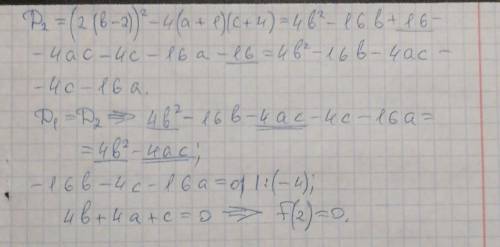 D₂ = (2(b-2))² - 4(a+1)(c+4) = 4b² - 16b + 16 -
- 4ac - 4c - 16a - 16 = 4b² - 16b - 4ac -
- 4c - 16a.
D₁ = D₂ ⇒ 4b² - 16b - 4ac - 4c - 16a =
= 4b² - 4ac;
-16b - 4c - 16a = 0 | :(-4);
4b + 4a + c = 0 ⇒ F(2) = 0.